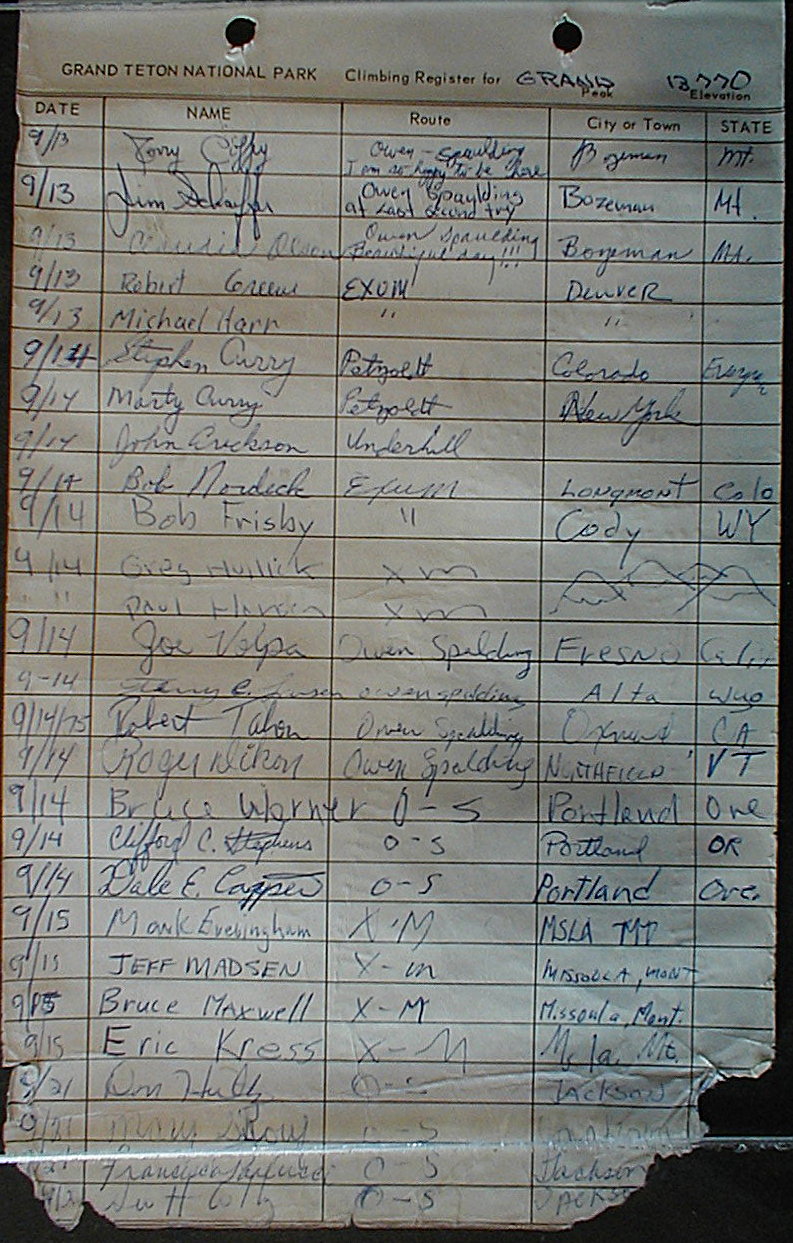 GRAND TETON NATIONAL PARK Climbing Register for GRAND Peak 13770 Elevation
DATE NAME Route City or Town STATE
9/13 Owen-Spaulding Bozeman Mt.
I am so happy to be here
9/13 Jim Owen Spaulding Bozeman Mt.
at Last second try
9/13 Olson Owen Spaulding Bozeman Mt.
Beautiful day!!!
9/13 Robert Greene EXUM DENVER
9/13 Michael Harr " "
9/14 Stephen Curry Petzoldt Colorado
9/14 Marty Curry Petzoldt New York
9/14 John Erickson Underhill
9/14 Bob Nordeck Exum LONGMONT Colo
9/14 Bob Frisby " Cody WY
9/14 Greg X M
" " Paul X M
9/14 Joe Volpa Owen Spalding FRESNO Calif
9-14 owen spalding Alta Wyo
9/14/75 Robert Owen Spalding CA
9/14 Roger Owen Spalding NORTHFIELD VT
9/14 Bruce Warner O-S Portland Ore
9/14 Clifford C. Stephens O-S Portland OR
9/14 Dale E. O-S Portland Ore.
9/15 Mark Evevingham X-M MSLA MT
9/15 JEFF MADSEN X-M MISSOULA, MONT
9/15 Bruce Maxwell X-M Missoula, Mont.
9/15 Eric Kress X-M Msla, Mt.
9/21 Don O-S JACKSON
9/21 O-S
O-S Jackson
O-S